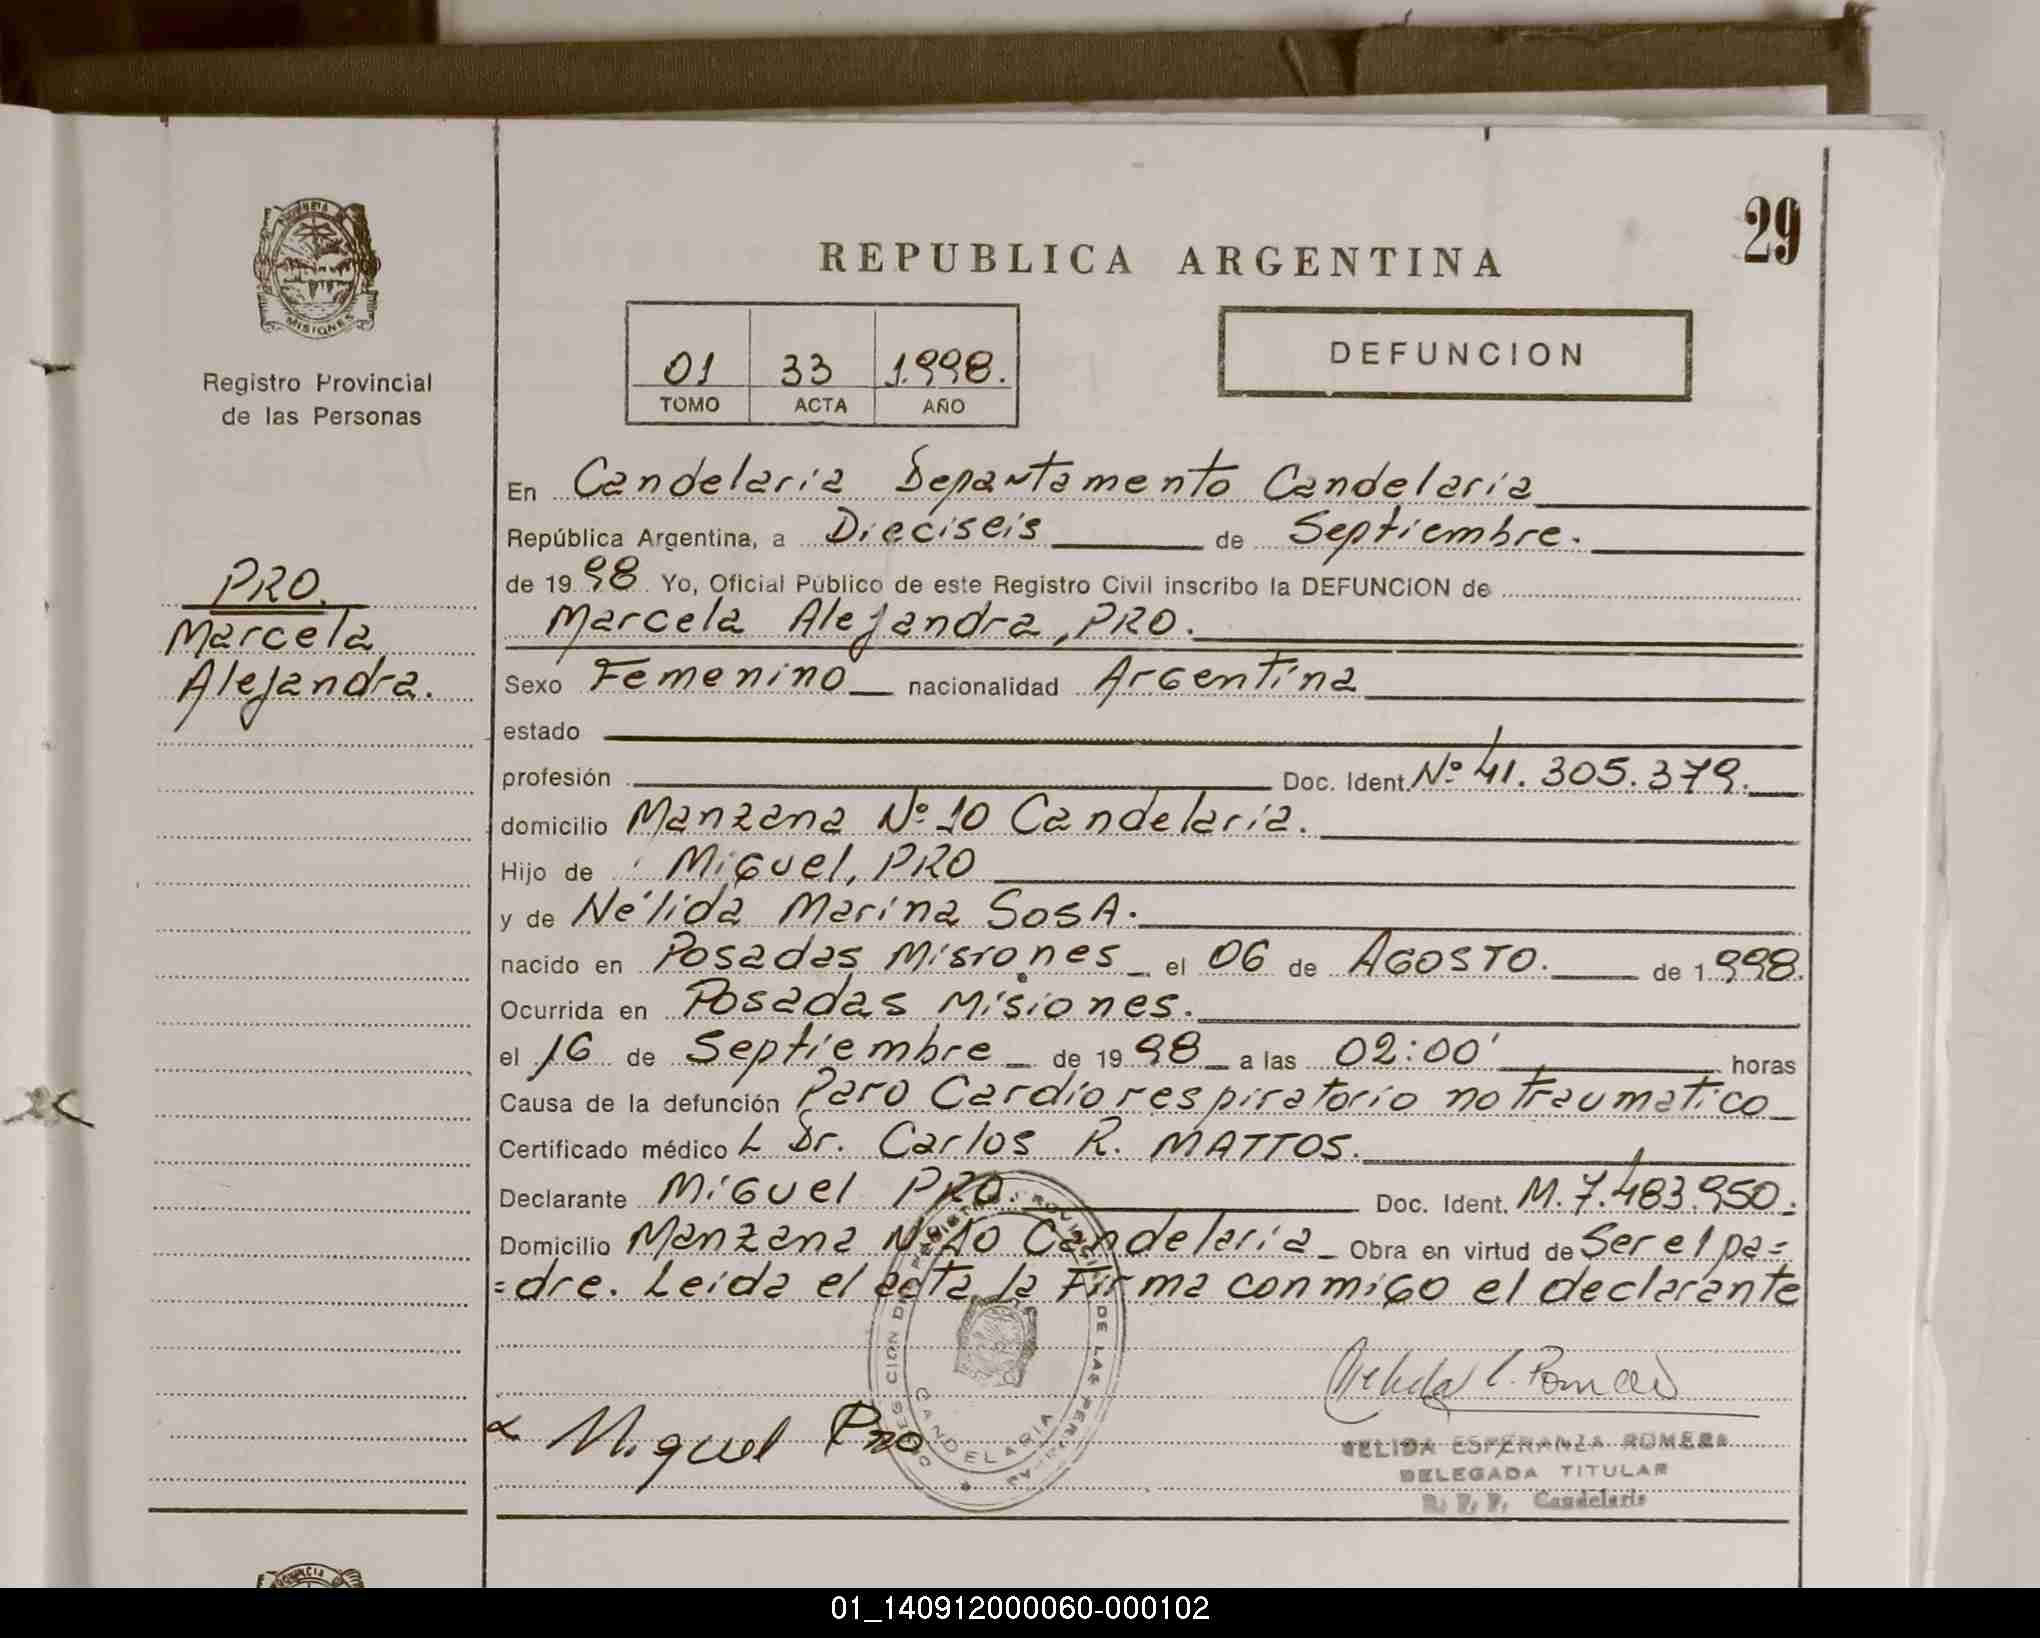 29
REPUBLICA ARGENTINA
MISIONES
Registro Provincial
de las Personas
01 33 1.998.
TOMO ACTA AÑO
DEFUNCION
PRO.
Marcela
Alejandra.
En Candelaria Departamento Candelaria
República Argentina, a Dieciseis de Septiembre.
de 19 98 Yo, Oficial Público de este Registro Civil inscribo la DEFUNCION de
Marcela Alejandra, PRO.
Sexo Femenino nacionalidad Argentina
estado
profesión Doc. Ident. Nº 41.305.379.
domicilio Manzana Nº 10 Candelaria.
Hijo de Miguel, PRO
y de Nélida Marina SosA.
nacido en Posadas Misiones el 06 de AGOSTO. de 1.998.
Ocurrida en Posadas Misiones.
el 16 de Septiembre de 19 98 a las 02:00' horas
Causa de la defunción Paro Cardiorespiratorio no traumatico
Certificado médico Dr. Carlos R. MATTOS.
Declarante Miguel PRO. Doc. Ident. M. 7.483.950.
Domicilio Manzana Nº 10 Candelaria Obra en virtud de Ser el pa=
=dre. Leida el acta la Firma conmigo el declarante
Miguel Pro
CANDELARIA
NELIDA ESPERANZA ROMERO
DELEGADA TITULAR
R. P. P. Candelaria
01_140912000060-000102